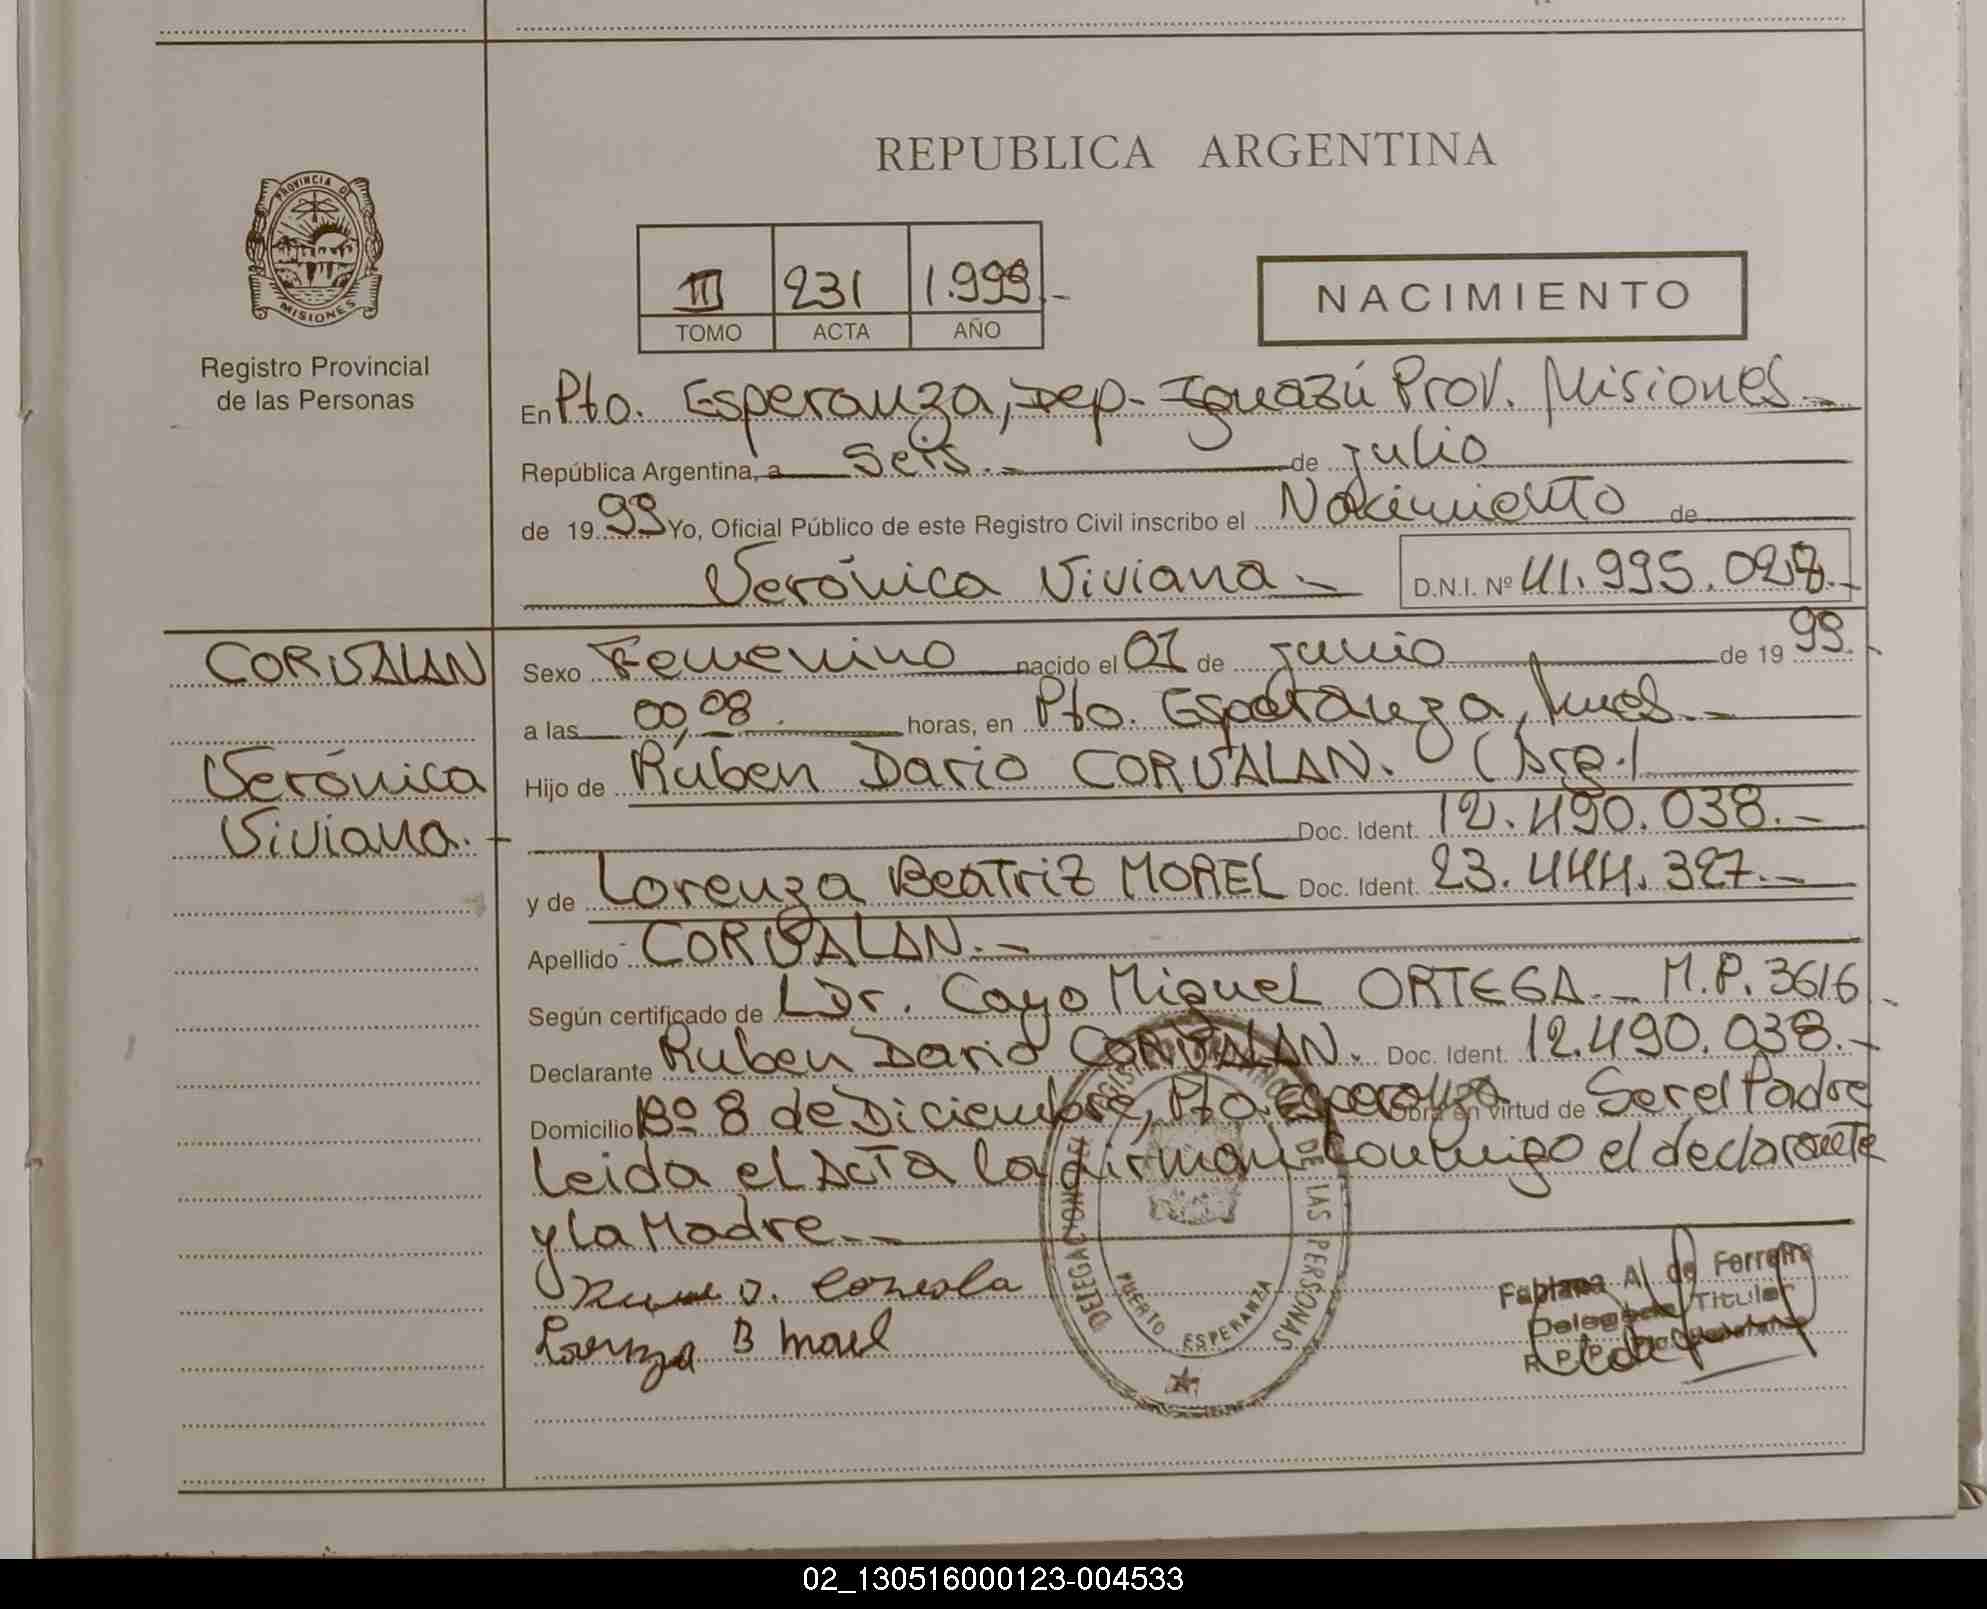 REPUBLICA ARGENTINA
PROVINCIA DE
MISIONES
Registro Provincial
de las Personas
III 231 1.999.-
TOMO ACTA AÑO
NACIMIENTO
En Pto. Esperanza, Dep- Iguazú Prov. Misiones.-
República Argentina, a Seis.- de julio
de 1999 Yo, Oficial Público de este Registro Civil inscribo el Nacimiento de
Verónica Viviana.- D.N.I. Nº 41.995.028.-
CORVALAN
Verónica
Viviana.-
Sexo Femenino nacido el 01 de junio de 1999.-
a las 00,08. horas, en Pto. Esperanza, Mnes.-
Hijo de Rúben Dario CORVALAN. (Arg.)
Doc. Ident. 12.490.038.-
y de Lorenza Beatriz MOREL Doc. Ident. 23.444.327.-
Apellido CORVALAN.-
Según certificado de Dr. Cayo Miguel ORTEGA.- M.P. 3616.-
Declarante Ruben Dario CORVALAN. Doc. Ident. 12.490.038.-
Domicilio Bº 8 de Diciembre, Pto. Esperanza Obra en virtud de Ser el Padre
Leida el Acta la firman conmigo el declarante
y la Madre.-
Lorenza B Morel
DELEGACION DE LAS PERSONAS
PUERTO ESPERANZA
Fabiana A. de Ferreira
Delegada Titular
02_130516000123-004533